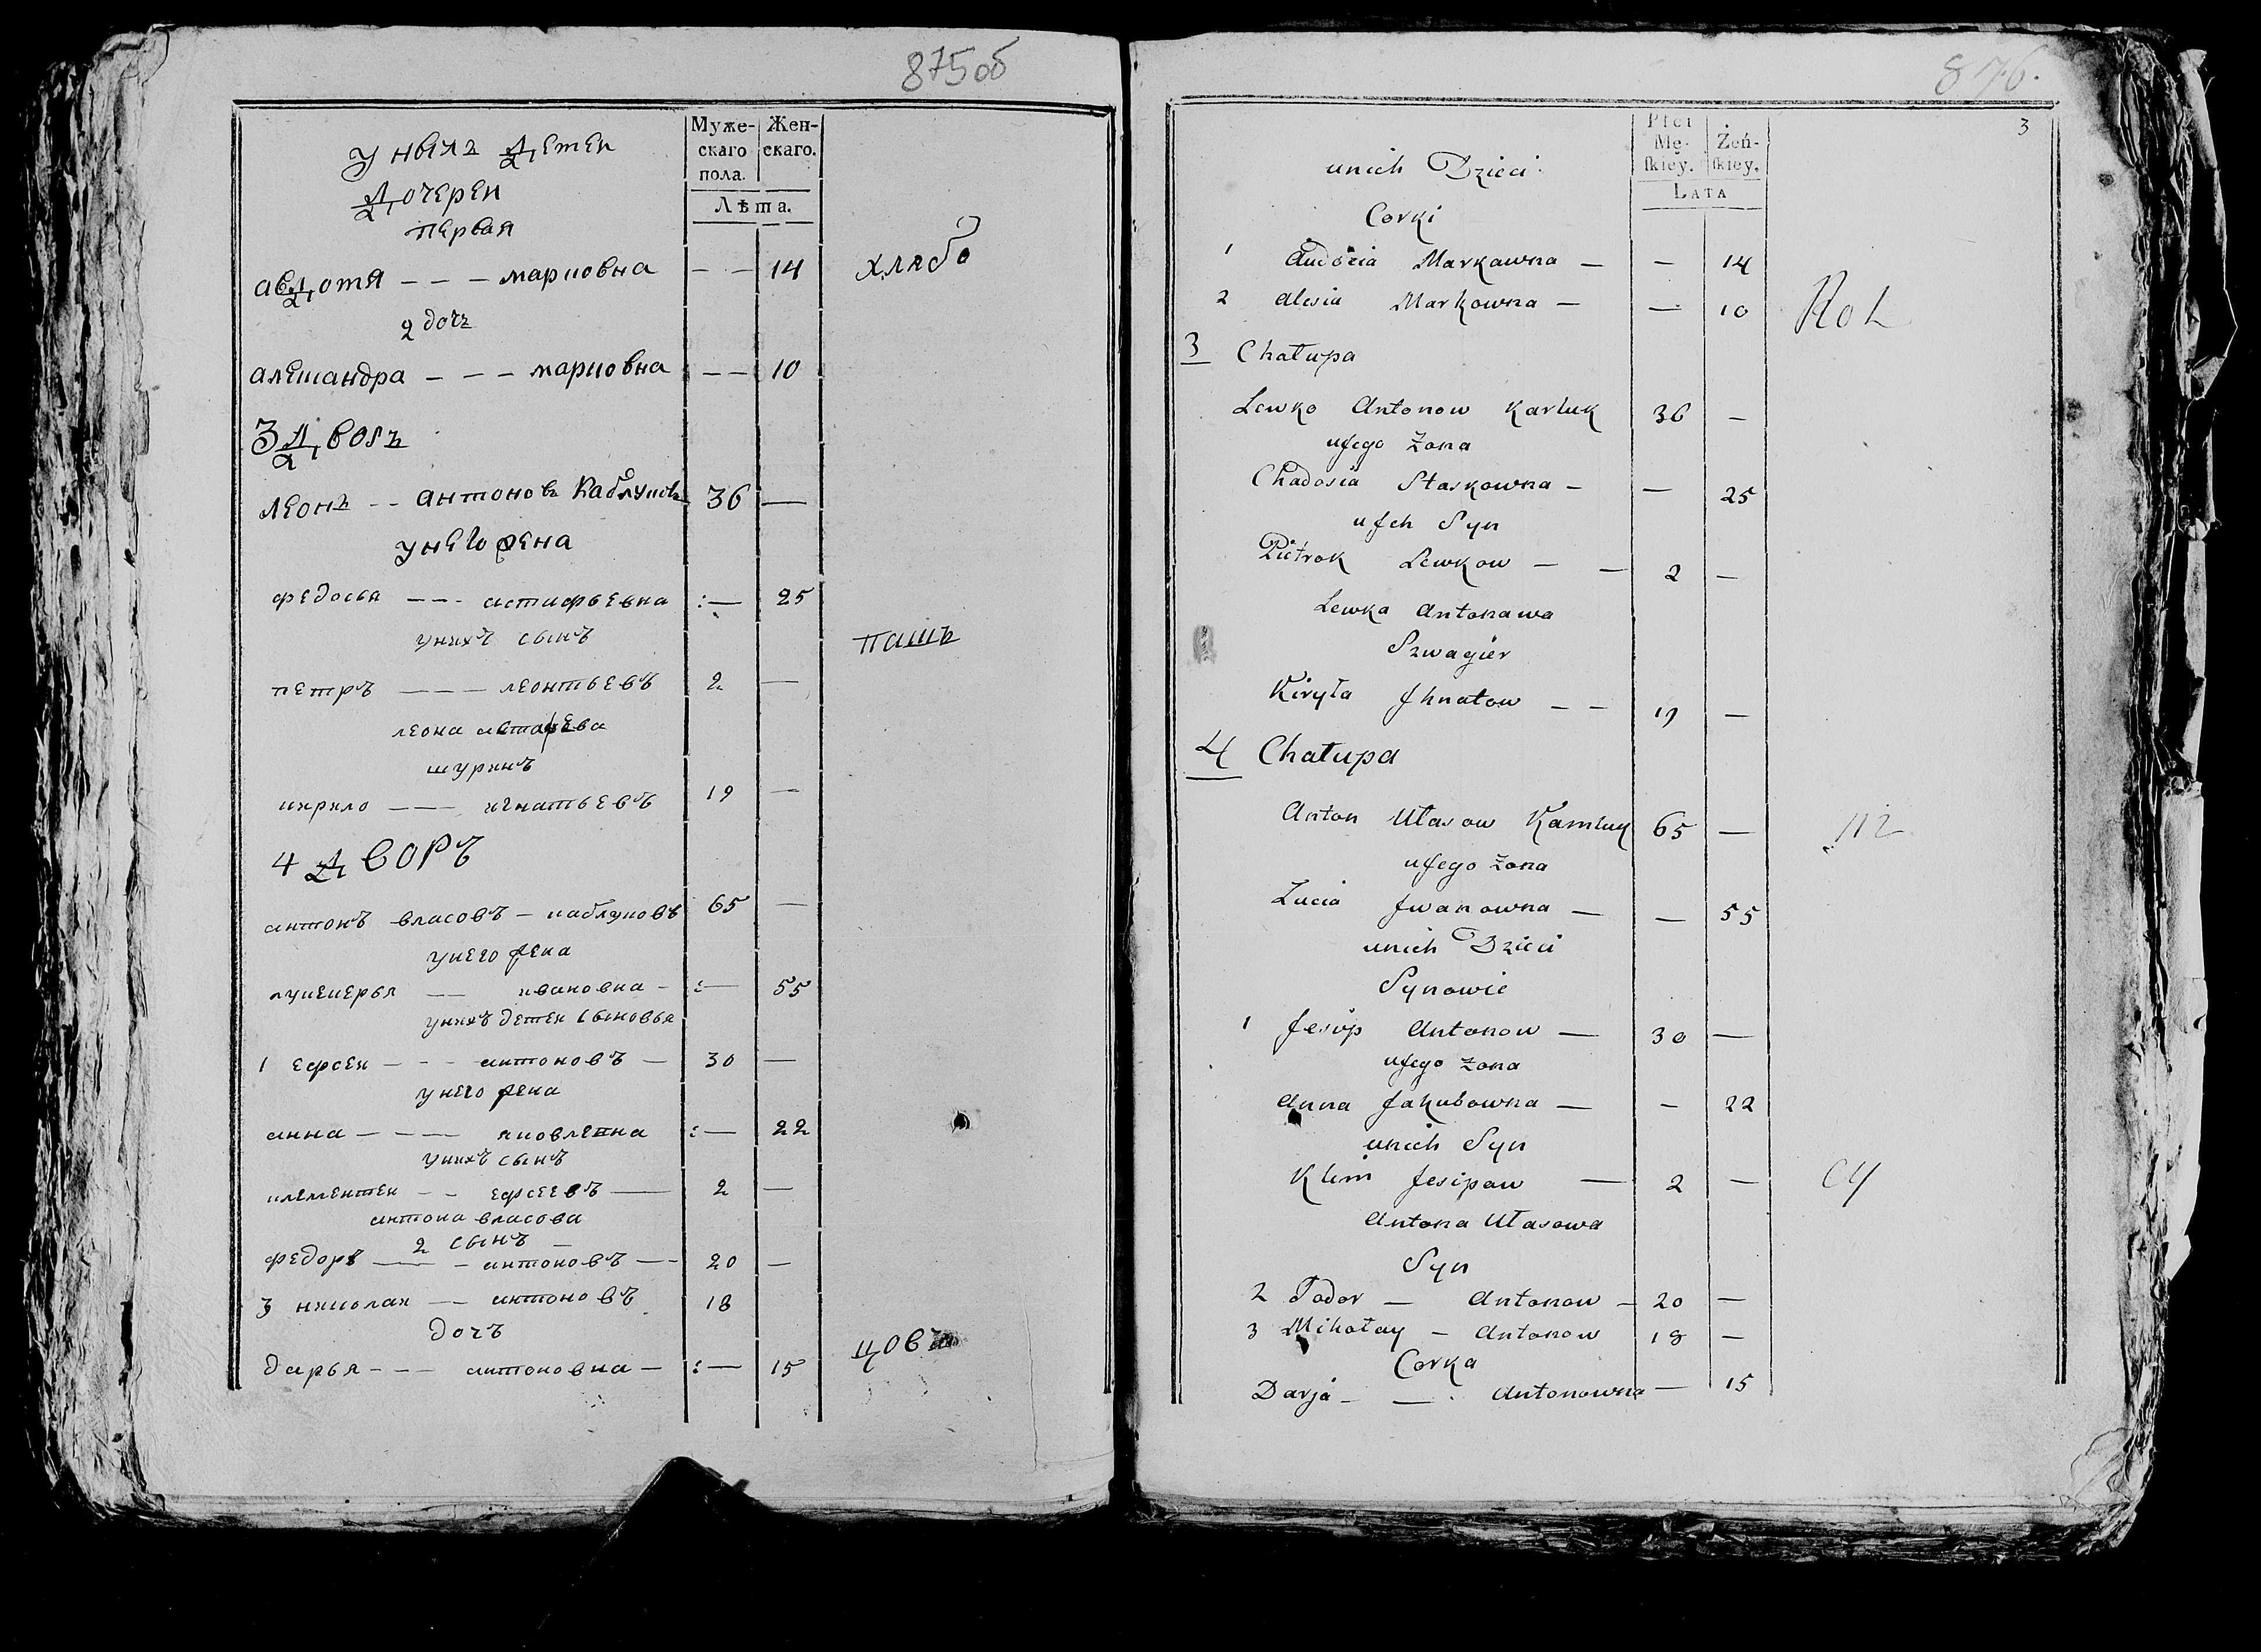 875об
Муже-
скаго
пола.
Жен-
скаго.
Лѣта.
у ныхъ детеи
дочереи
первая
авдотя - - - марковна - - 14
хлѣбо
2 дочъ
алешандра - - - марковна - - 10
3 дворъ
леонъ - - антоновъ Каблуковъ 36 —
унего жена
федосья - - - астафьевна :— 25
унихъ сынъ
пашъ
петръ - - - леонтьевъ 2 —
леона астафьева
шуринъ
кирило - - - игнатьевъ 19 —
4 дворъ
антонъ власовъ - каблуковъ 65 —
унего жена
лукекерья — ивановна - :— 55
унихъ детеи сыновья
1 ефсеи - - - антоновъ — 30 —
унего жена
анна - - - яковлевна :— 22
унихъ сынъ
клементеи - - ефсеевъ — 2 —
антона власова
2 сынъ —
федоръ — - антоновъ — 20 —
3 николаи — антоновъ 18
дочъ
дарья - - - антоновна — :— 15
876.
3
Płci
Mę-
ſkiey.
Żeń-
ſkiey.
LATA
unich Dzieci
Corki
1 Audocia Markawna — — 14
2 Alesia Markowna — — 10
3 Chałupa
Lewko Antonow Karluk 36 —
ujego Żona
Chadosia Staskowna — — 25
u jch Syn
Pietrok Lewkow — — 2 —
Lewka Antonawa
Szwagier
Kiryła Jhnatow — — 19 —
4 Chałupa
Anton Ułasow 65 —
ujego Żona
Lucia Jwanowna — — 55
unich Dzieci
Synowie
1 Jesip Antonow — 30 —
ujego Żona
Anna Jakubowna — — 22
unich Syn
Klim Jesipow — 2 —
Antona Ułasowa
Syn
2 Todor — Antonow — 20 —
3 Mikołay — Antonow 18 —
Corka
Darja — — Antonowna — 15